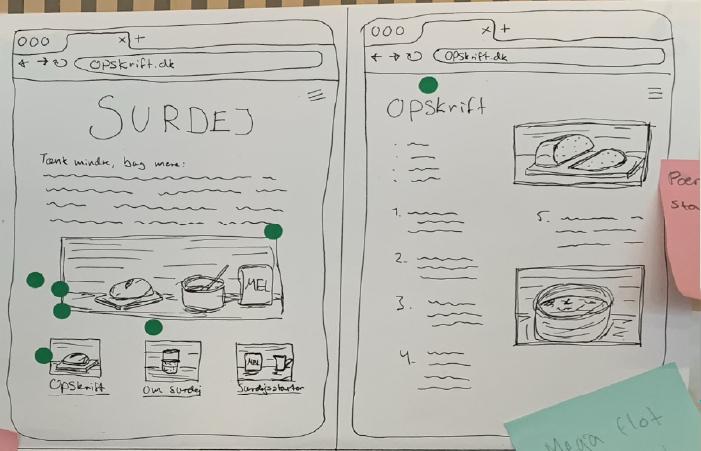 x +
Opskrift.dk
SURDEJ
Tænk mindre, bag mere:
MEL
Opskrift
Om surdej
MEL
Surdejsstarter
x +
Opskrift.dk
Opskrift
1.
2.
3.
4.
5.
Mega flot